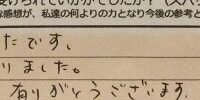 受けられていかがでしたか？（スバ
な感想が、私達の何よりの力となり今後の参考と
たです、
りました。
ありがとうございます